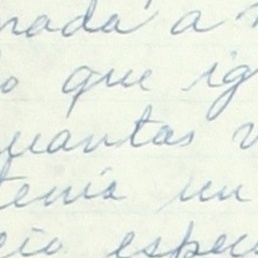 rada a
o que ig
uantas v
tenía un
cio espec